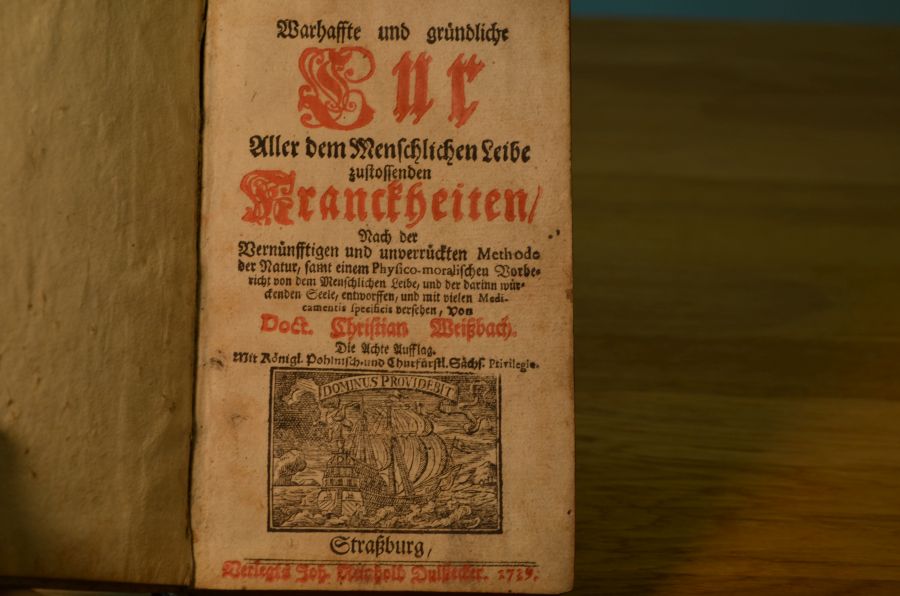 Warhaffte und gründliche
Cur
Aller dem Menschlichen Leibe
zustossenden
Kranckheiten/
Nach der
Vernünfftigen und unverrückten Methode
der Natur, samt einem Physico-moralischen Vorbe-
richt von dem Menschlichen Leibe, und der darinn wür-
ckenden Seele, entworffen, und mit vielen Medi-
camentis specificis versehen, von
Doct. Christian Weißbach.
Die Achte Aufflag.
Mit Königl. Pohlnisch- und Churfürstl. Sächs. Privilegio.
DOMINUS PROVIDEBIT
Straßburg,
Verlegts Joh. Reinhold Dulsecker.